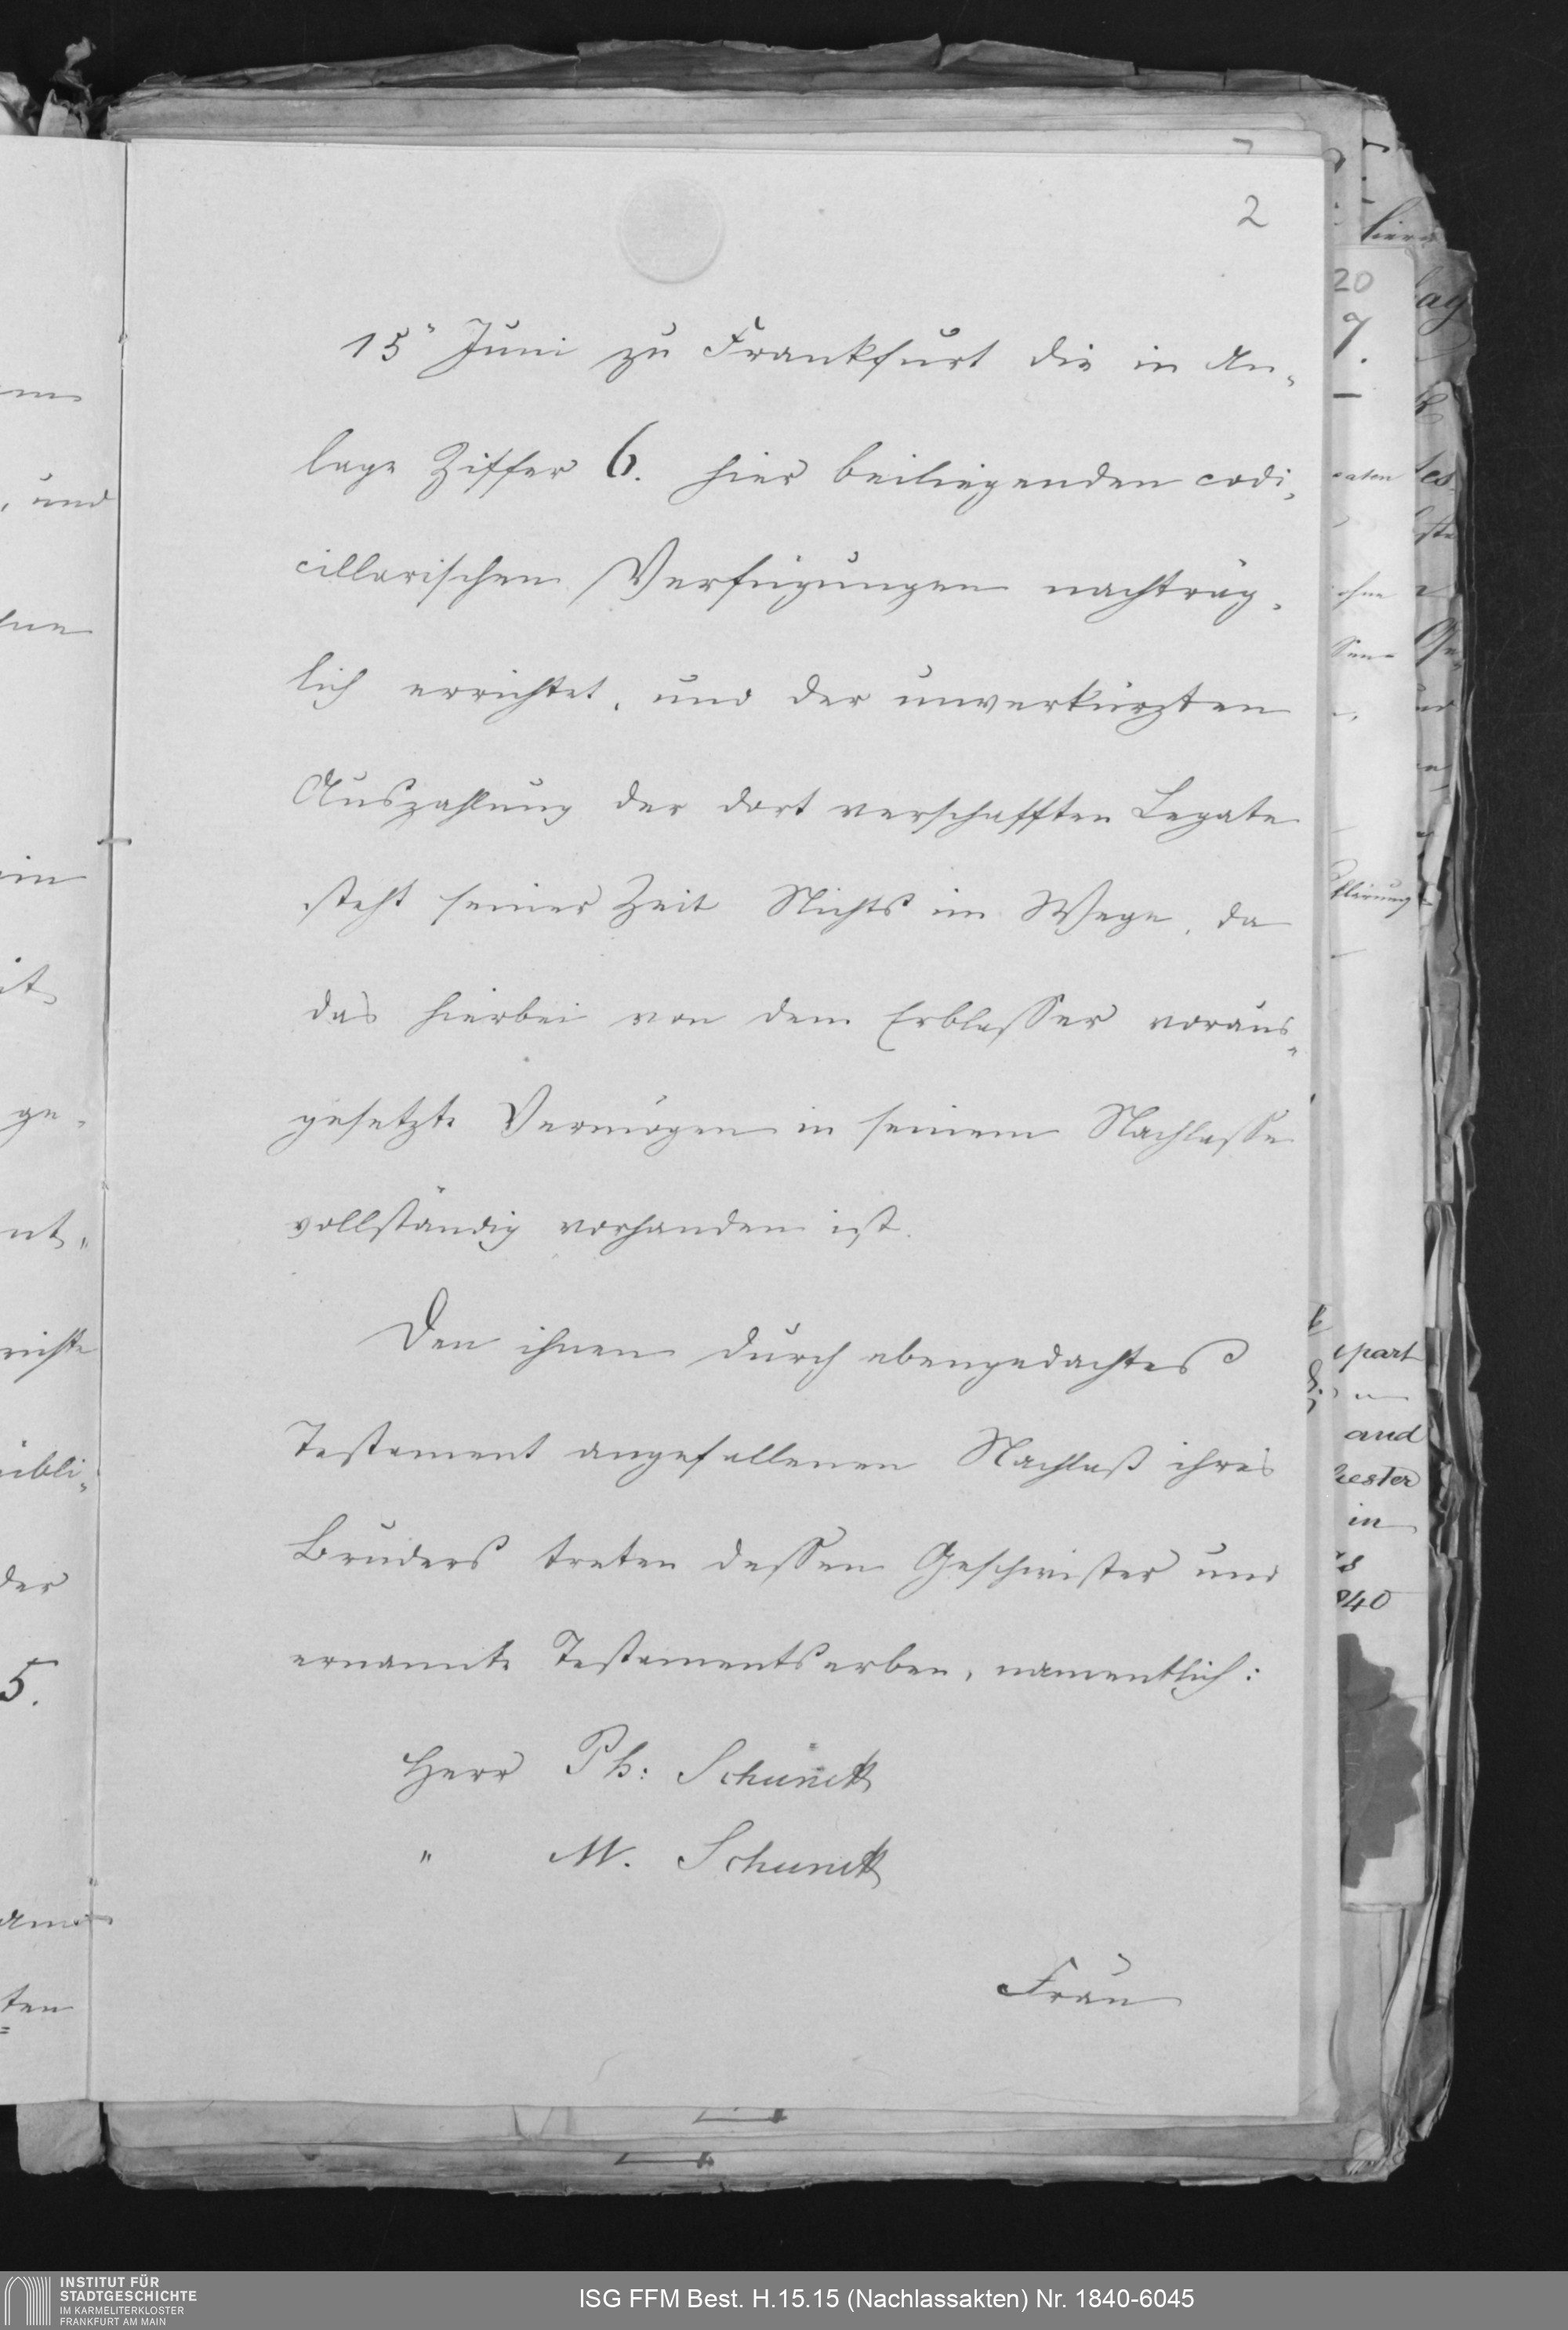 2
15n Juni zu Frankfurt die in An-
lage Ziffer 6. hier beiliegenden codi-
cillarischen Verfügungen nachträg-
lich errichtet, und der unverkürzten
Auszahlung der dort verschafften Legate
steht seiner Zeit Nichts im Wege, da
das hierbei von dem Erblasser voraus-
gesetzte Vermögen in seinem Nachlasse
vollständig vorhanden ist.
Den ihnen durch ebengedachtes
Testament angefallenen Nachlaß ihres
Bruders treten dessen Geschwister und
ernannte Testamentserben, namentlich:
Herr Ph: Schunck
" M. Schunck
Frau
, und
ge-
der
5.
ten
20
7.
and
in
INSTITUT FÜR
STADTGESCHICHTE
IM KARMELITERKLOSTER
FRANKFURT AM MAIN
ISG FFM Best. H.15.15 (Nachlassakten) Nr. 1840-6045